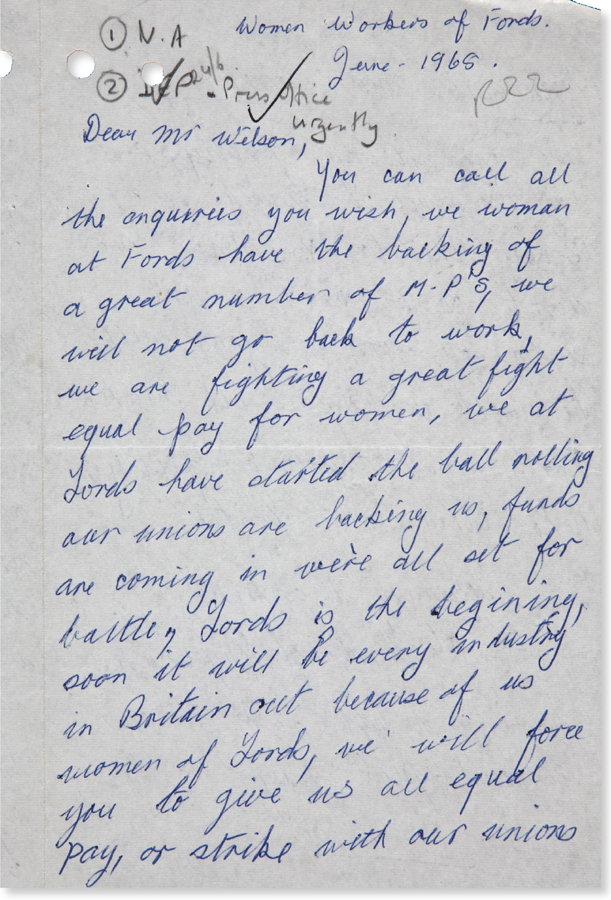 ① N.A Women Workers of Fords.
June - 1968.
② Press Office
urgently
Dear Mr Wilson,
You can call all
the enquiries you wish, we woman
at Fords have the backing of
a great number of M-P's, we
will not go back to work,
we are fighting a great fight
equal pay for women, we at
Fords have started the ball rolling
our unions are backing us, funds
are coming in we're all set for
battle, Fords is the begining,
soon it will be every industry
in Britain out because of us
women of Fords, we will force
you to give us all equal
pay, or strike with our unions